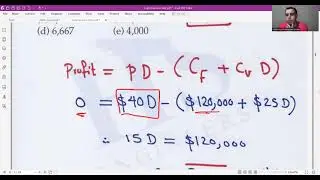 (d) 6,667 (e) 4,000
Profit = PD - (C_f + C_v D)
0 = $40 D - ($120,000 + $25 D)
∴ 15 D = $120,000